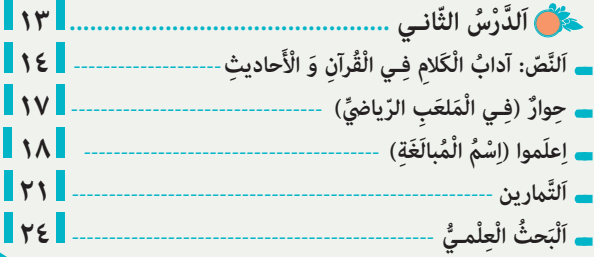 اَلدَّرْسُ الثّانـي ............................................... ١٣
اَلنَّصّ: آدابُ الْكَلامِ فِـي الْقُرآنِ وَ الْأَحاديثِ --------------------- ١٤
حِوارٌ (فِـي الْمَلعَبِ الرّياضيِّ) ------------------------------------ ١٧
اِعلَموا (اِسْمُ الْمُبالَغَةِ) ------------------------------------------ ١٨
اَلتَّمارين ------------------------------------------------------------ ٢١
اَلْبَحثُ الْعِلْمـيُّ ---------------------------------------------------- ٢٤